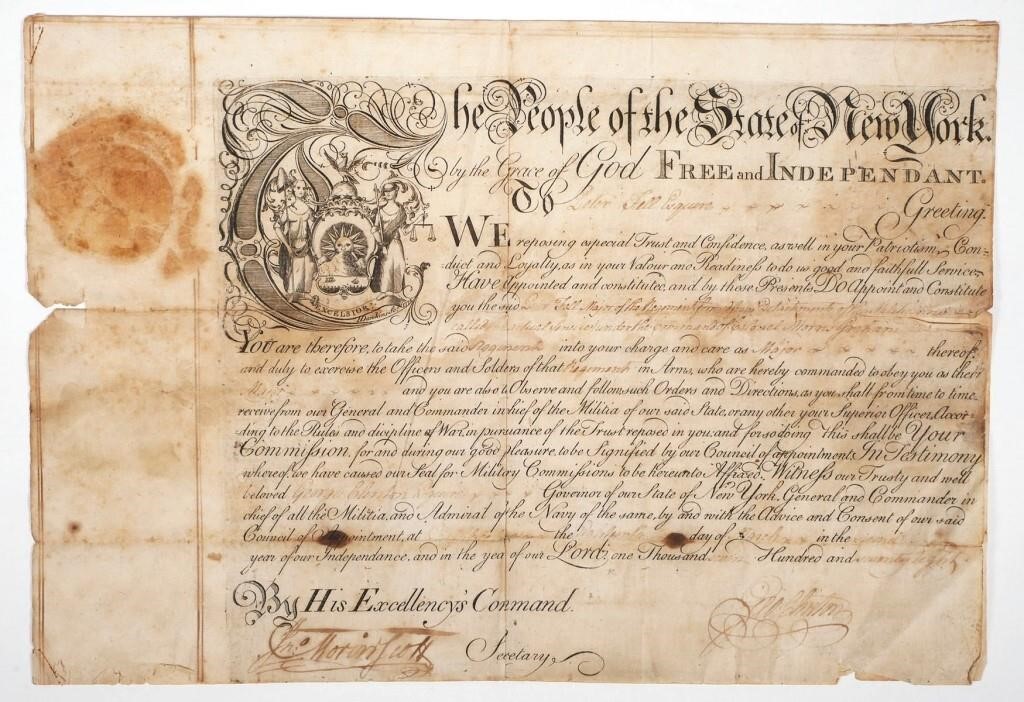 The People of the State of New York.
by the Grace of God FREE and INDEPENDANT.
To Esquire Greeting.
WE reposing especial Trust and Confidence, as well in your Patriotism, Con-
duct and Loyalty, as in your Valour and Readiness to do us good and faithfull Service
Have appointed and constituted, and by these Presents, DO Appoint and Constitute
you the said Fell Major of the Regiment
under the command of Colonel Morris Graham
EXCELSIOR
You are therefore, to take the said Regiment into your charge and care as Major thereof,
and duly to exercise the Officers and Solders of that Regiment in Arms, who are hereby commanded to obey you as their
Major and you are also to Observe and follow such Orders and Directions, as you shall from time to time
receive from our General and Commander in chief of the Militia of our said State, or any other your Superior Officer, Accor-
ding to the Rules and dicipline of War, in pursuance of the Trust reposed in you; and for so doing this shall be Your
Commission, for and during our good pleasure, to be Signified by our Council of appointment. In Testimony
whereof, we have caused our Seal for Military Commissions to be hereunto Affixed. Witness our Trusty and well
beloved George Clinton Esquire Govenor of our State of New York, General and Commander in
chief of all the Militia, and Admiral of the Navy of the same, by and with the Advice and Consent of our said
Council of Appointment, at the day of in the
year of our Independance, and in the yea of our Lord, one Thousand Hundred and Seventy eight
By His Excellency's Command.
Geo Clinton
Jno Morin Scott Secretary